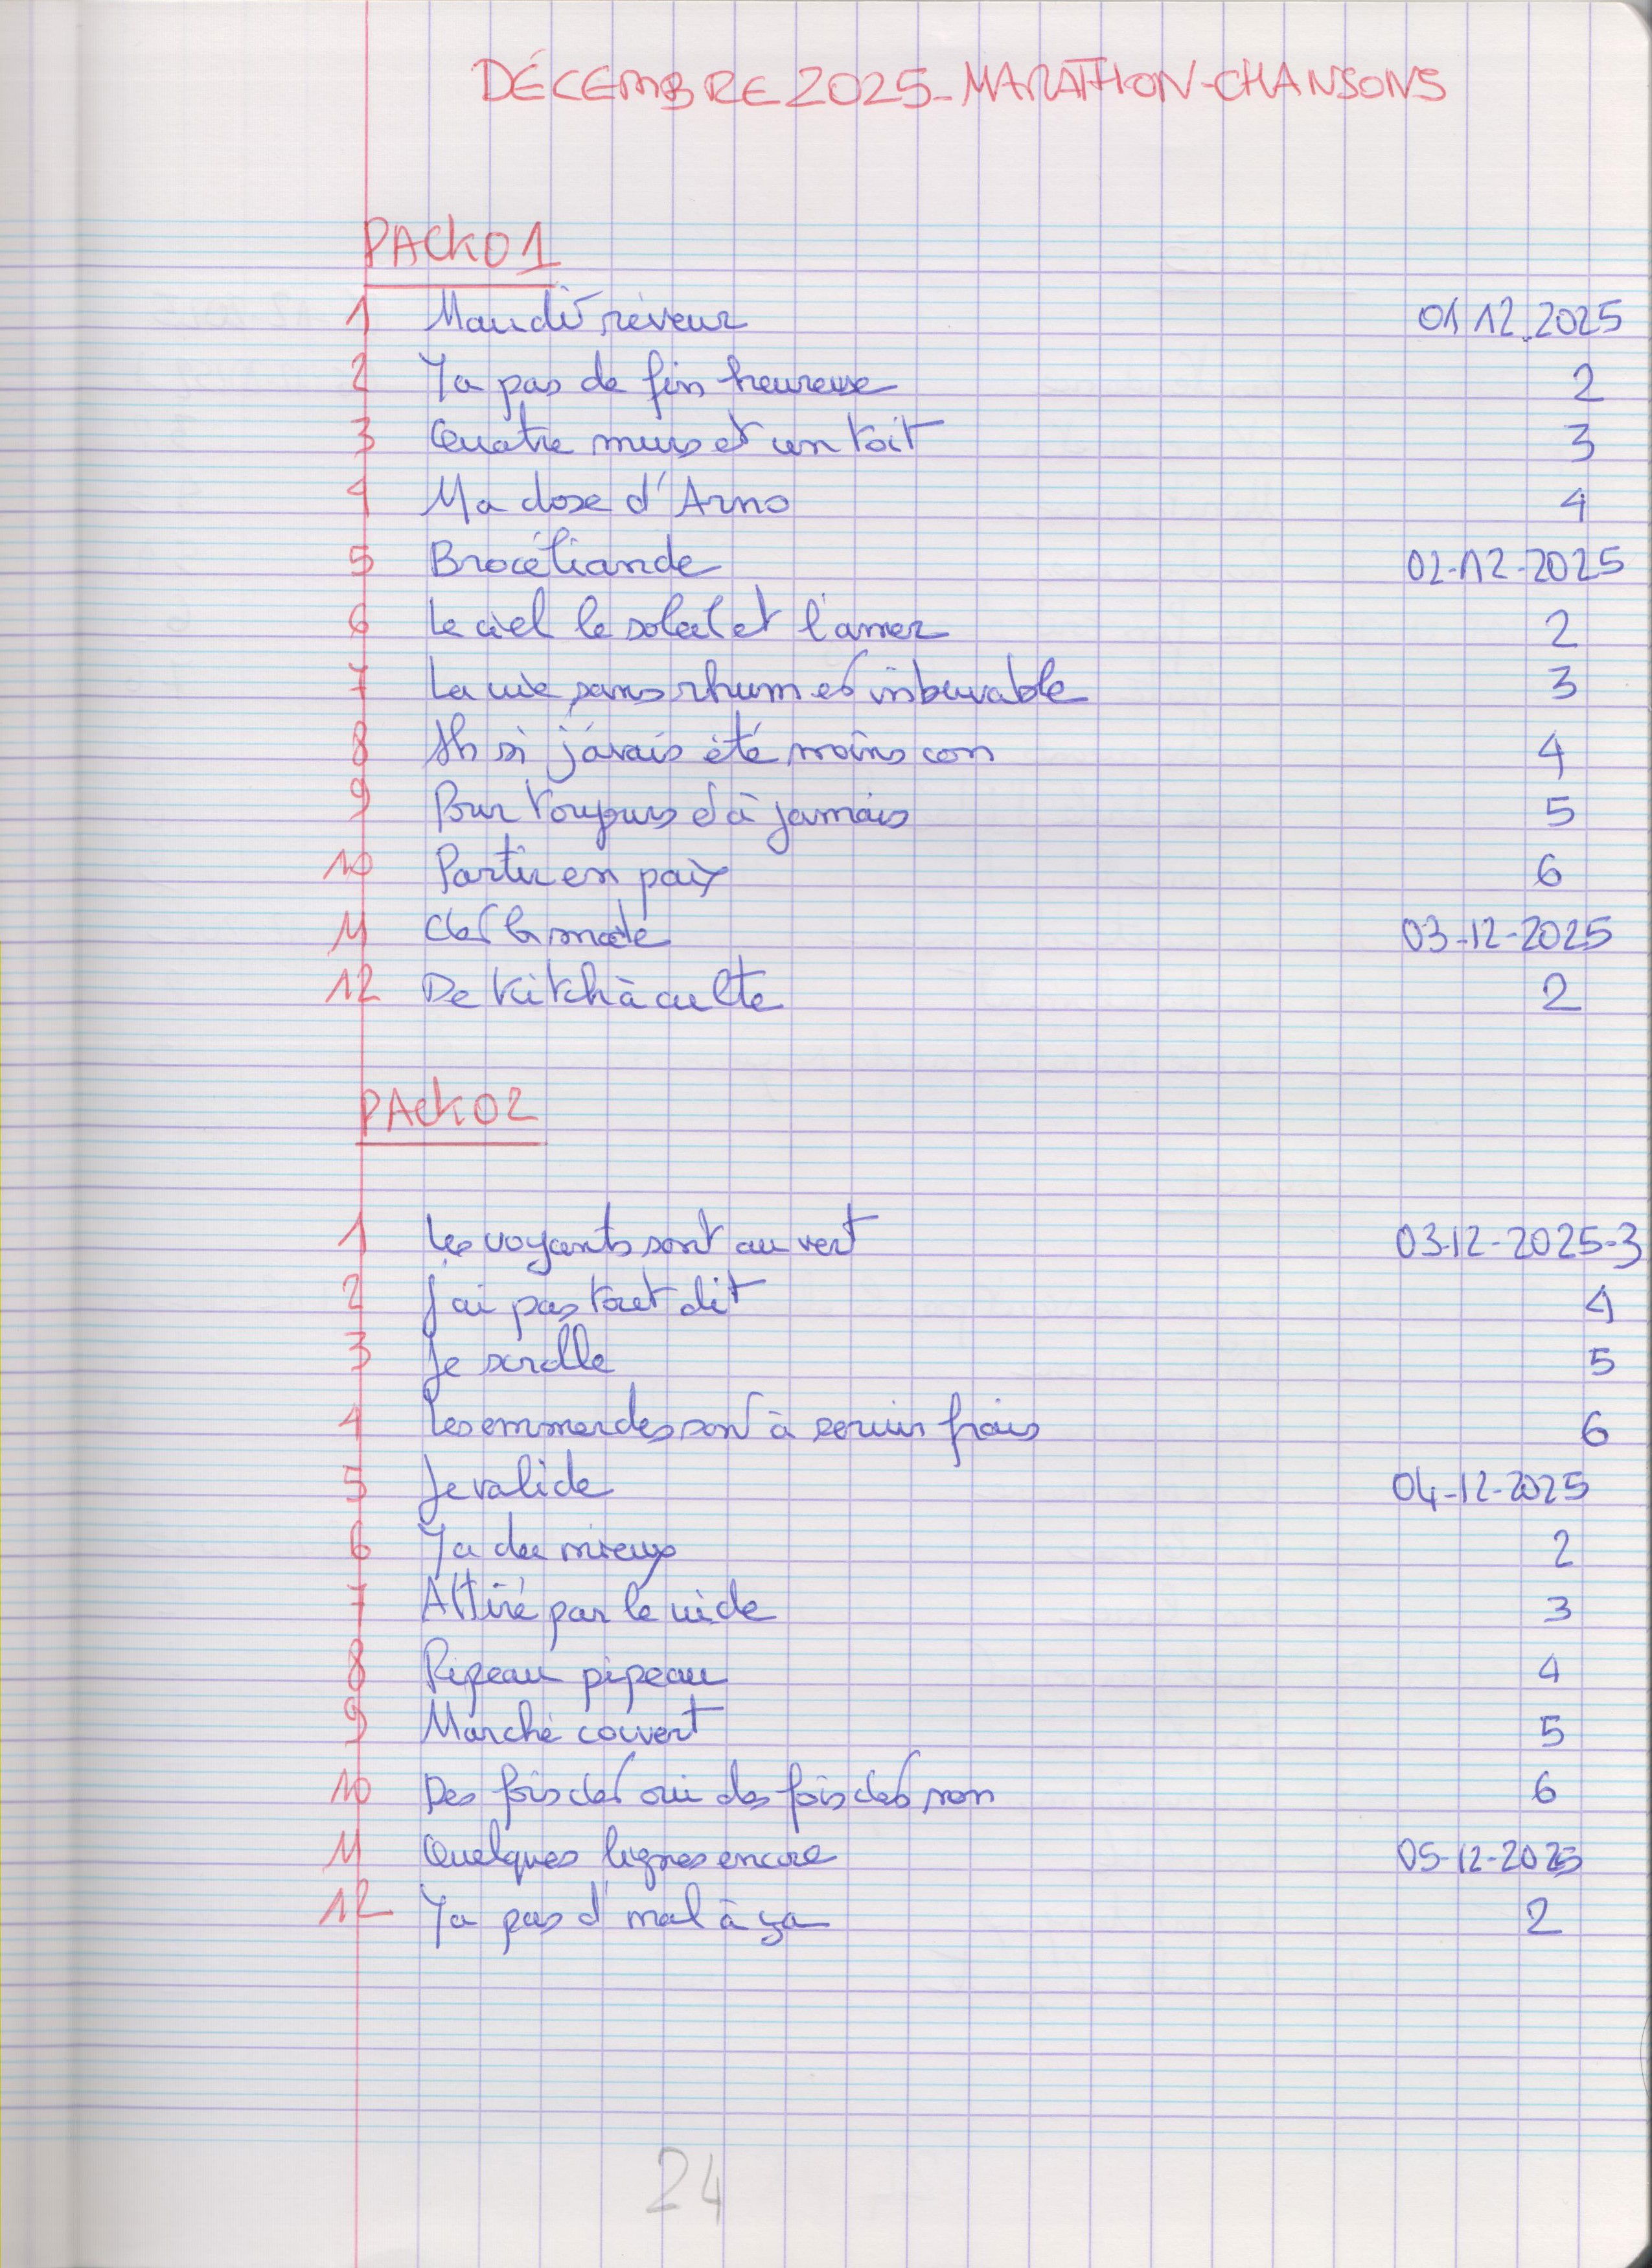 DÉCEMBRE 2025 - MARATHON - CHANSONS
PACK 01
1 Maudit rêveur 01 12.2025
2 Ya pas de fin heureuse 2
3 Quatre murs et un toit 3
4 Ma dose d'Arno 4
5 Brocéliande 02-12-2025
6 Le ciel le soleil et l'amer 2
7 La vie sans rhum est imbuvable 3
8 Ah si j'avais été moins con 4
9 Pour toujours et à jamais 5
10 Partir en paix 6
11 C'est la mode 03-12-2025
12 De kitch à culte 2
PACK 02
1 Les voyants sont au vert 03-12-2025-3
2 J'ai pas tout dit 4
3 Je scrolle 5
4 Les emmerdes sont à servir frais 6
5 Je valide 04-12-2025
6 Ya du mieux 2
7 Attiré par le vide 3
8 Pipeau pipeau 4
9 Marché couvert 5
10 Des fois c'est oui des fois c'est non 6
11 Quelques lignes encore 05-12-2025
12 Ya pas d'mal à ça 2
24